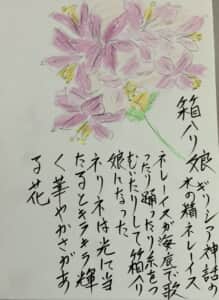 箱入り娘
ギリシア神話の
水の精ネレーイス
ネレーイスが海底で歌
ったり踊ったり糸をつ
むいだりして箱入り
娘になった
ネリネは光に当
たるとキラキラ輝
く華やかさがあ
る花